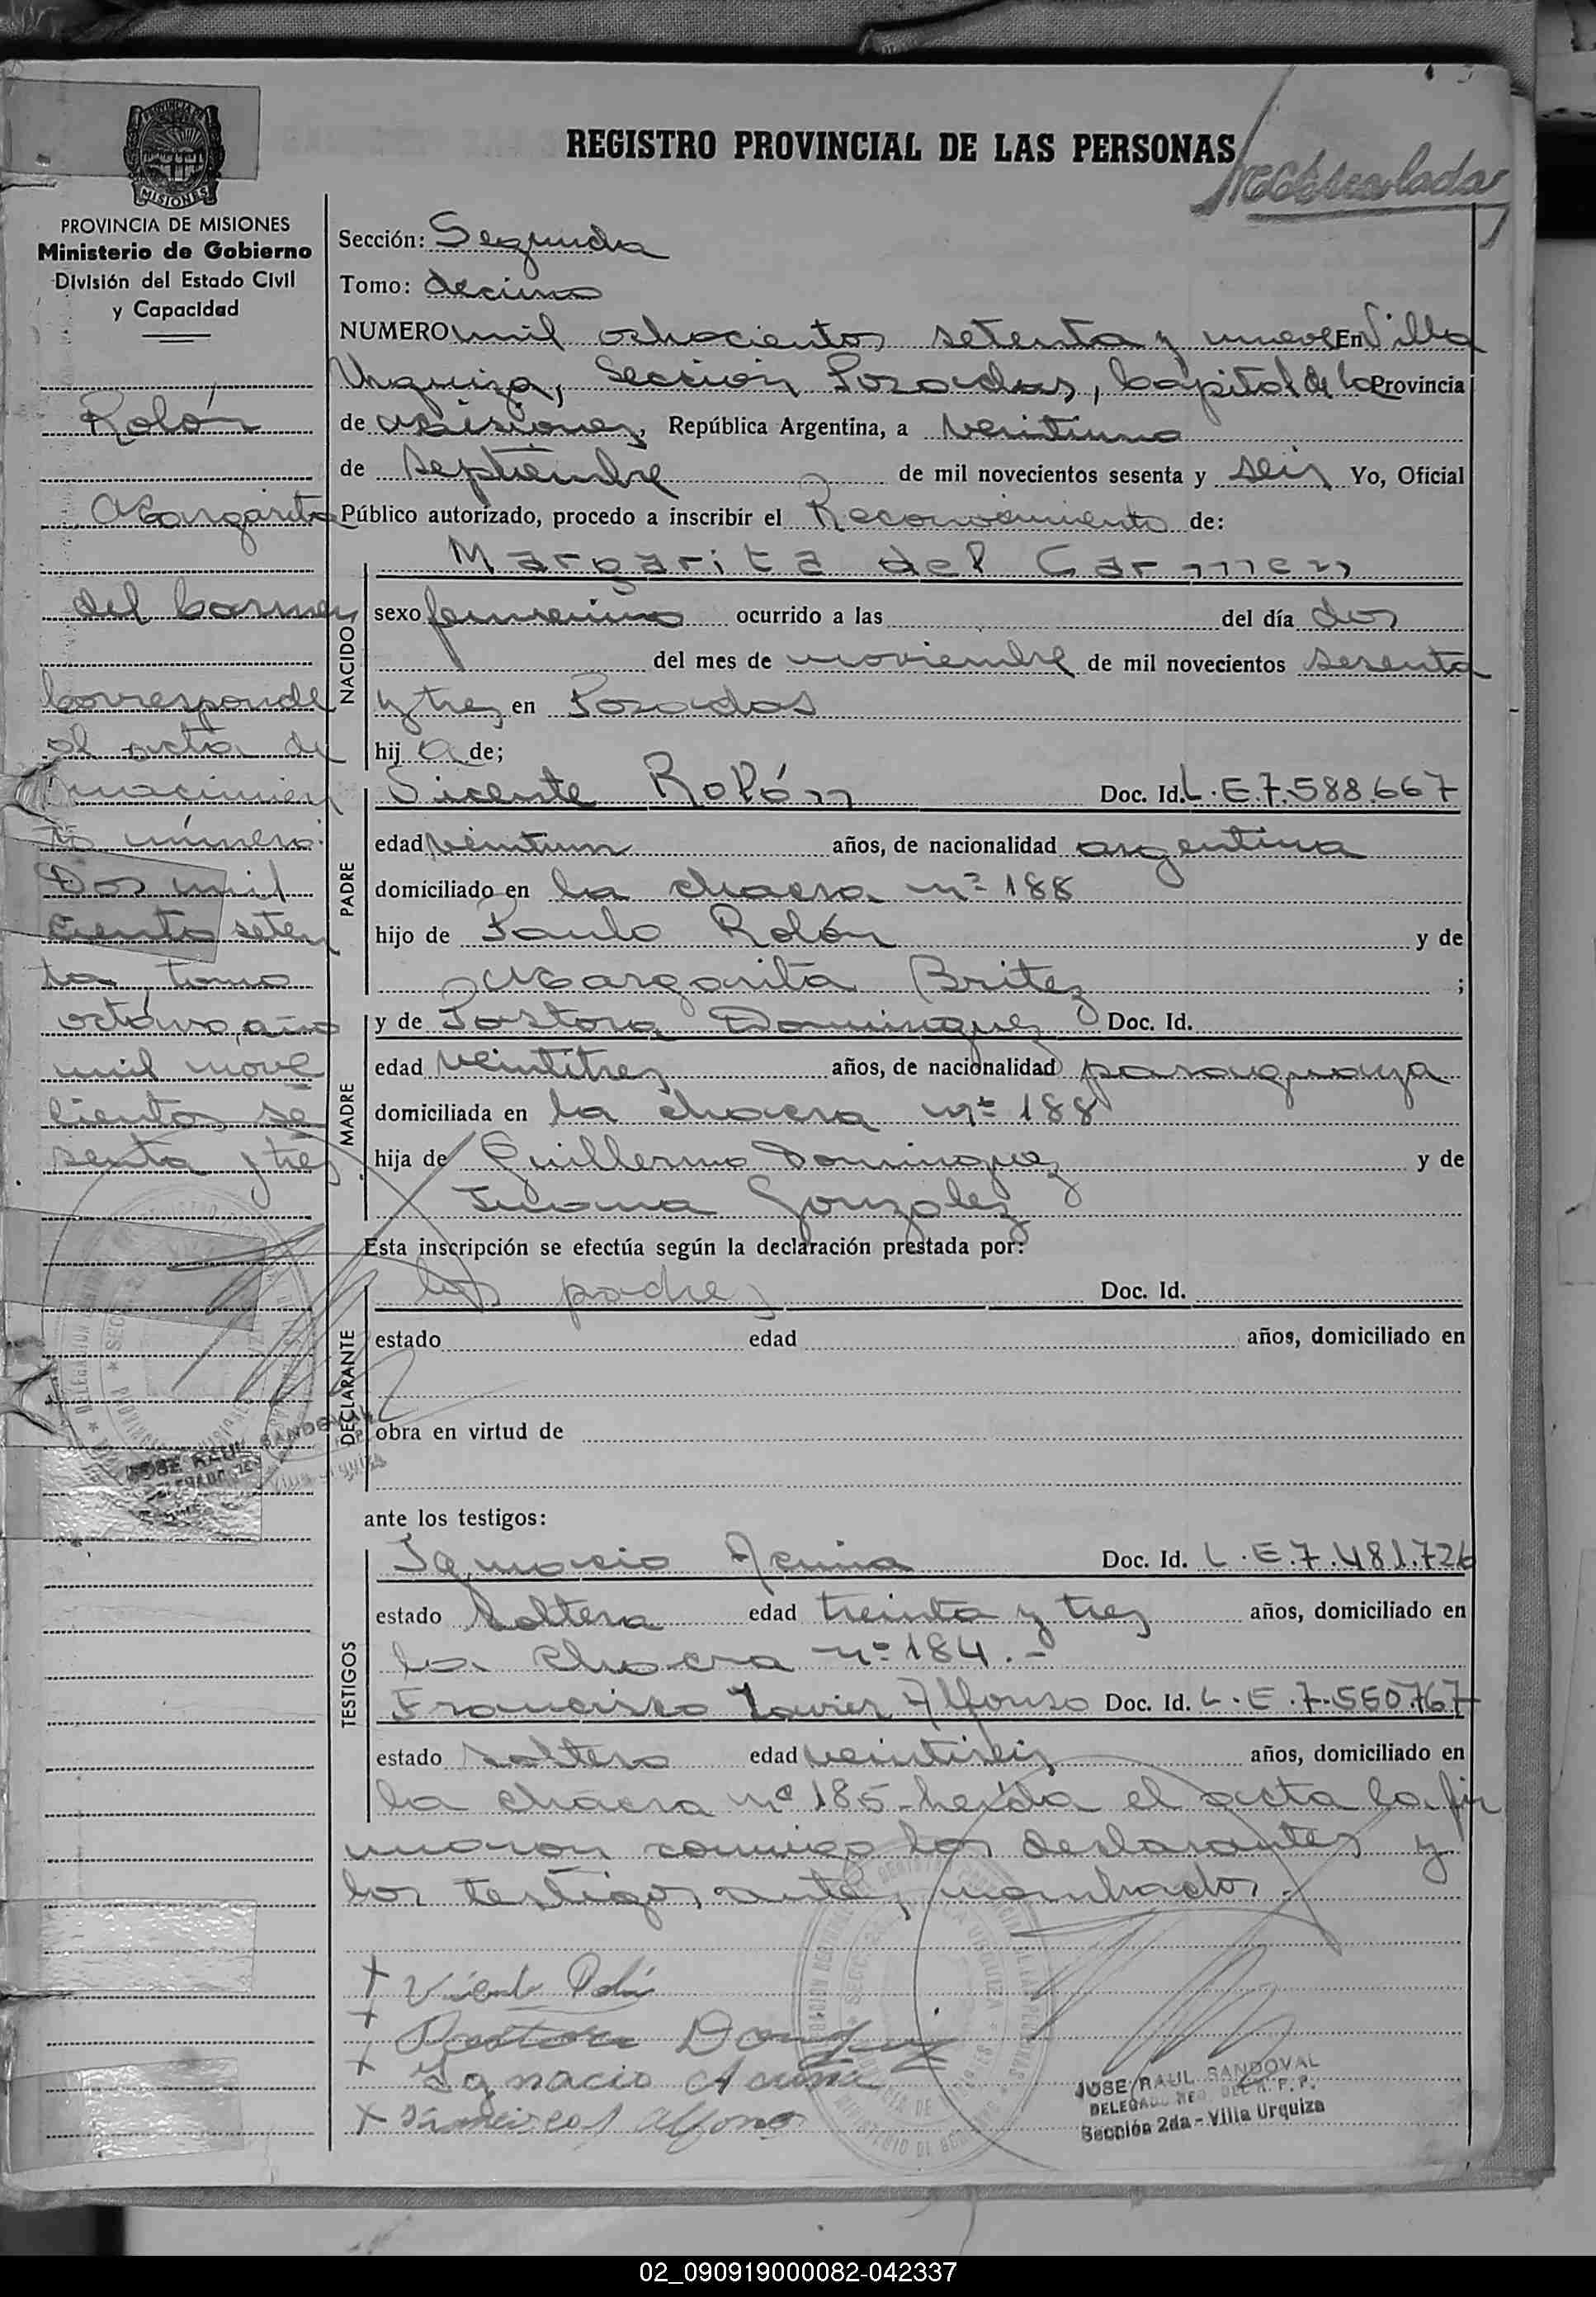 REGISTRO PROVINCIAL DE LAS PERSONAS
PROVINCIA DE MISIONES
Ministerio de Gobierno
División del Estado Civil
y Capacidad
Rolón
Margarita
del Carmen
Corresponde
al acta de
nacimien
to número
Dos mil
ciento seten
ta, tomo
octavo, año
mil nove
cientos se
senta y tres
Sección: Segunda
Tomo: decimo
NUMERO mil ochocientos setenta y nueve En Villa
Urquiza, Sección Posadas, Capital de la Provincia
de Misiones, República Argentina, a veintiuno
de septiembre de mil novecientos sesenta y seis Yo, Oficial
Público autorizado, procedo a inscribir el Reconocimiento de:
NACIDO
Margarita del Carmen
sexo femenino ocurrido a las del día dos
del mes de noviembre de mil novecientos sesenta
y tres en Posadas
hij a de;
PADRE
Vicente Rolón Doc. Id. L.E.7.588.667
edad veintiun años, de nacionalidad argentina
domiciliado en la chacra nº 188
hijo de Paulo Rolón y de
Margarita Britez ;
MADRE
y de Pastora Dominguez Doc. Id.
edad veintitres años, de nacionalidad paraguaya
domiciliada en la chacra nº 188
hija de Guillermo Dominguez y de
Juana Gonzalez
Esta inscripción se efectúa según la declaración prestada por:
DECLARANTE
los padres Doc. Id.
estado edad años, domiciliado en
obra en virtud de
ante los testigos:
TESTIGOS
Ignacio Acuña Doc. Id. L.E.7.481.726
estado soltero edad treinta y tres años, domiciliado en
la chacra nº 184.-
Francisco Javier Alfonso Doc. Id. L.E.7.550.767
estado soltero edad veintiseis años, domiciliado en
la chacra nº 185- leída el acta la fir
maron conmigo los declarantes y
los testigos antes nombrados.
+ Vicente Rolón
+ Pastora
+ Ignacio Acuña
+ Francisco J Alfonso
JOSE RAUL SANDOVAL
JOSE RAUL SANDOVAL
Sección 2da - Villa Urquiza
02_090919000082-042337